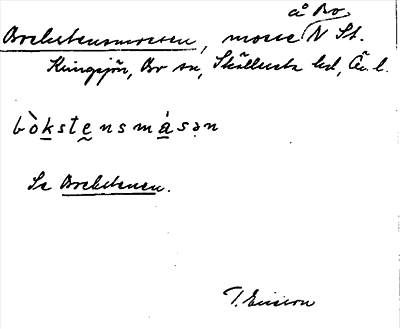 å Bo
Bockstensmossen, mosse N St.
Kungsjön, Bo sn, Sköllersta hd, Ör. l.
bòkstensmásən
Se Bockstenen.
T. Ericson